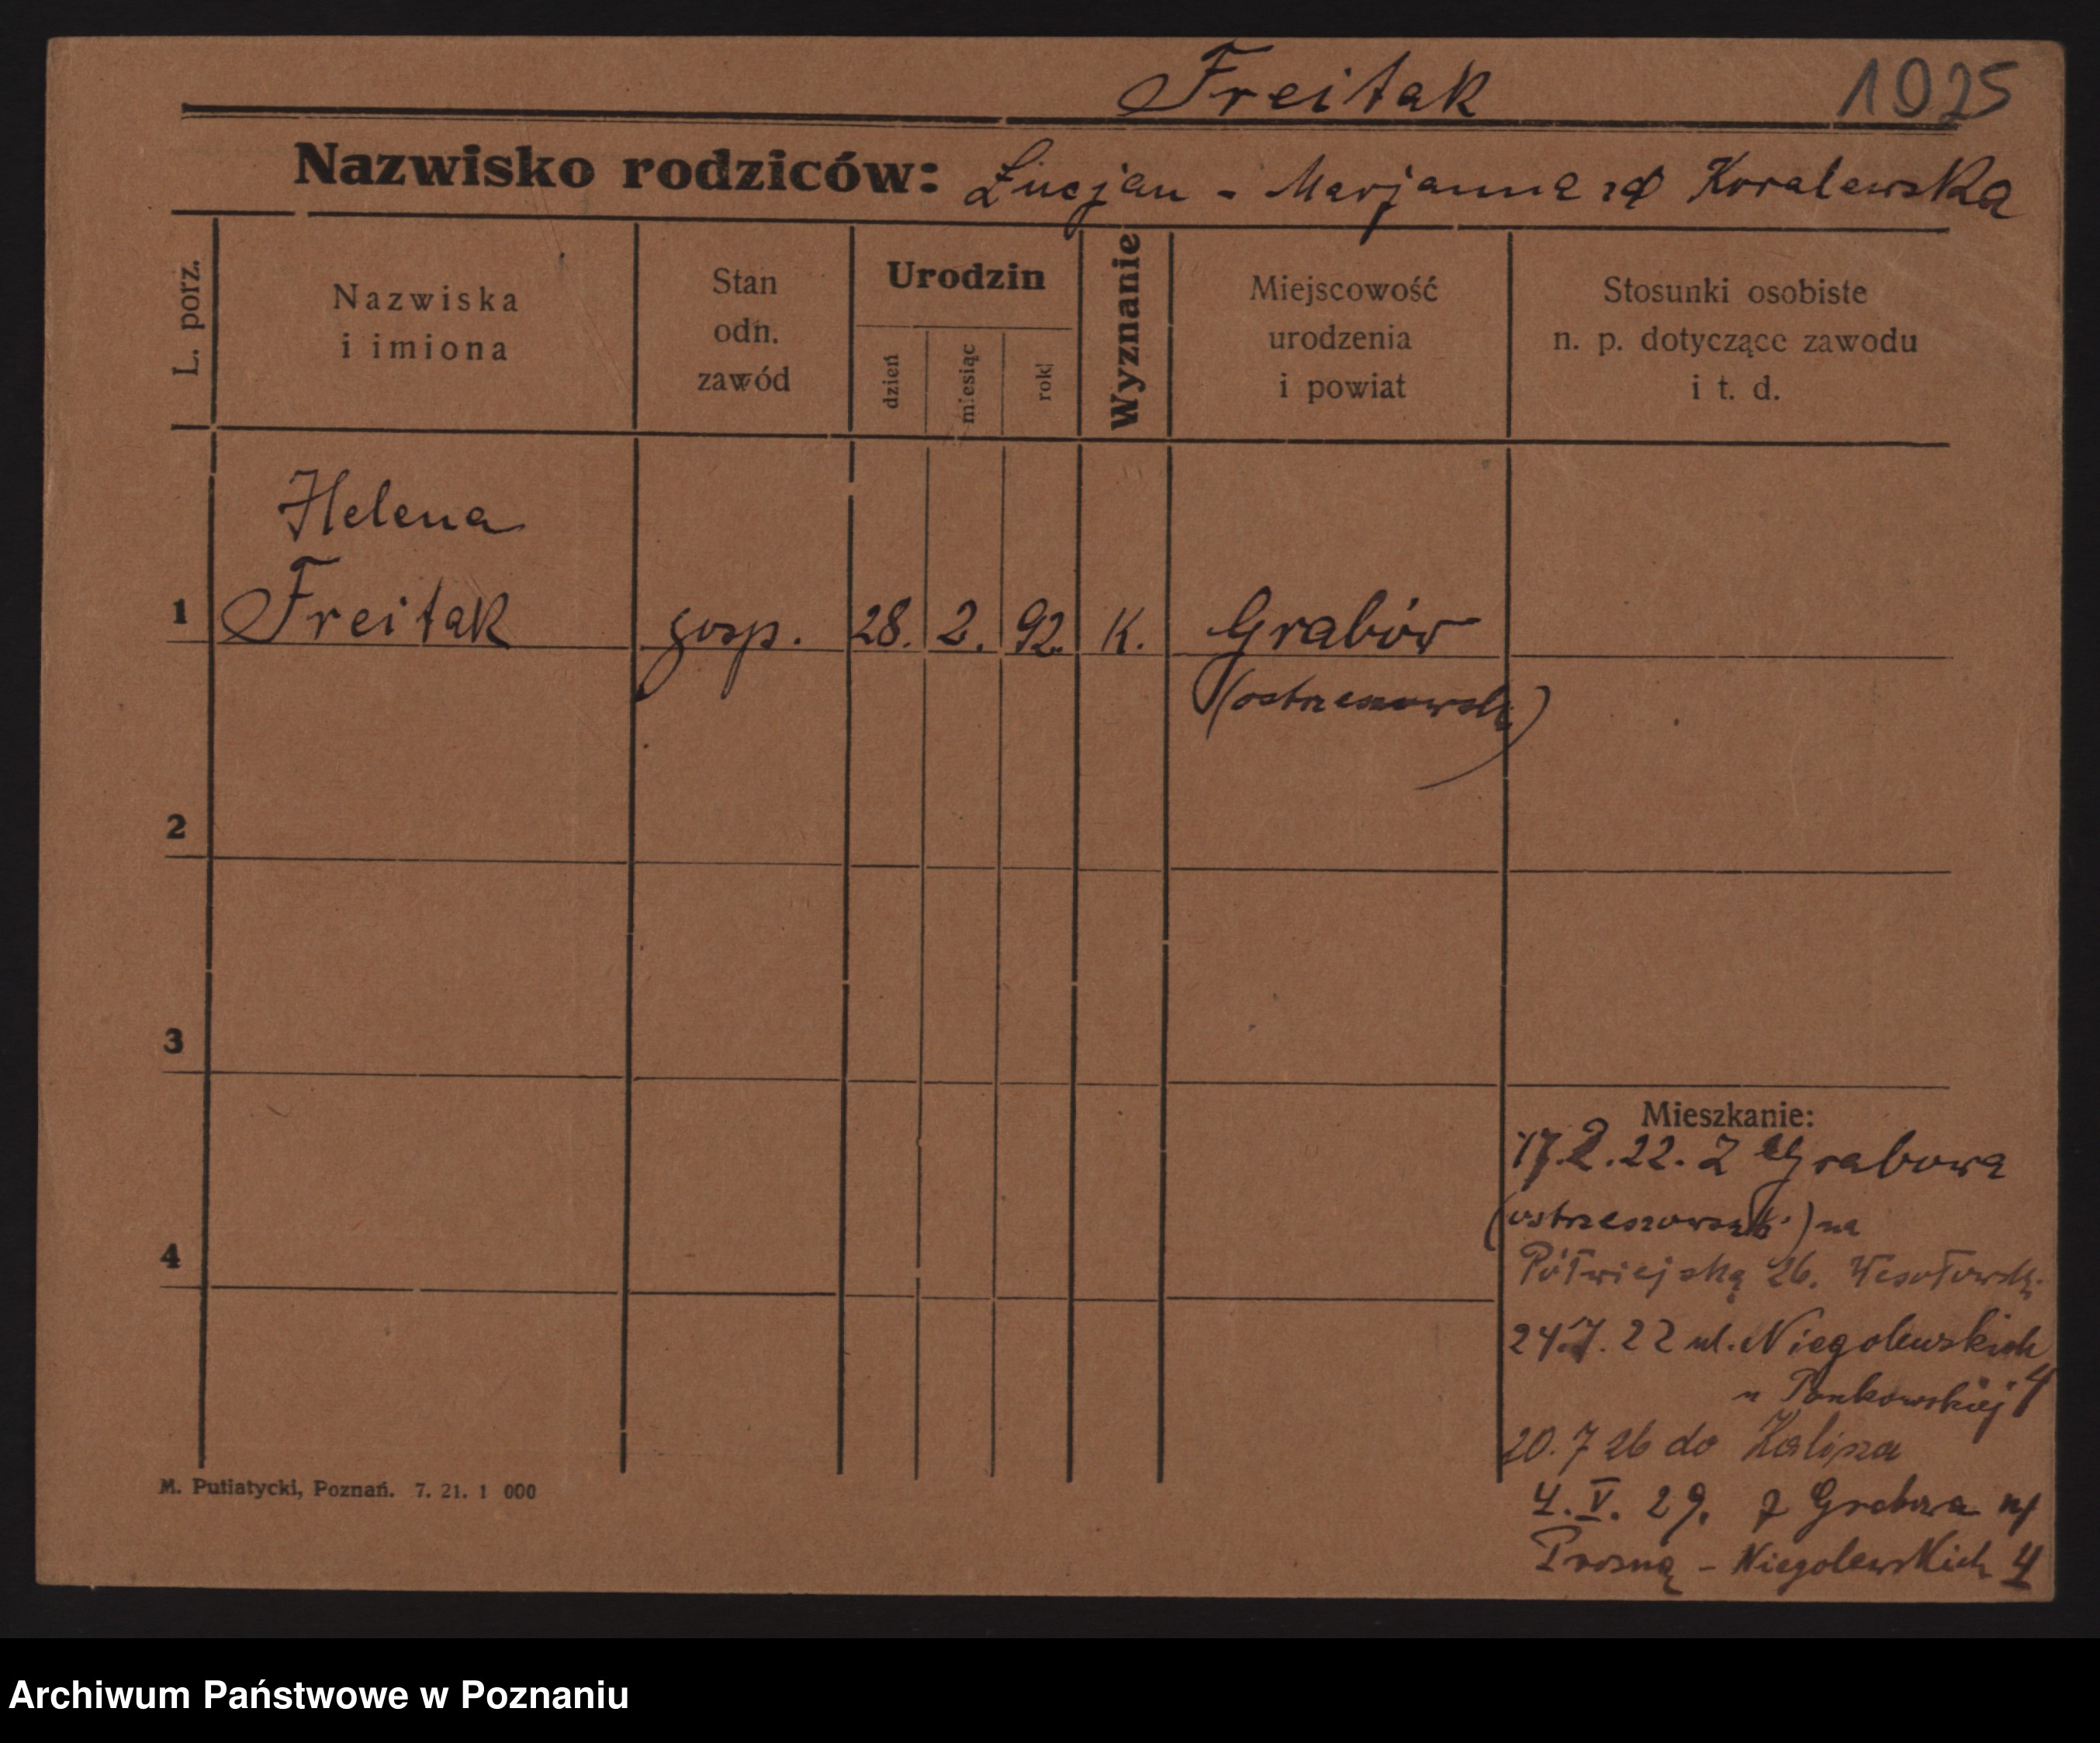 Freitak 1025
Nazwisko rodziców: Lucjan - Marjanna zd Koralewska
L. porz.
Nazwiska
i imiona
Stan
odn.
zawód
Urodzin
dzień
miesiąc
rok
Wyznanie
Miejscowość
urodzenia
i powiat
Stosunki osobiste
n. p. dotyczące zawodu
i t. d.
Helena
1 Freitak gosp. 28. 2. 92. K. Grabów
(ostrzeszowski)
2
3
4
Mieszkanie:
17.2.22. Z Grabowa
(ostrzeszowski) na
Półwiejską 26. Wesołowsk.
24.7.22 ul. Niegolewskich
u Pankowskiej 4
20.7 26 do Kalisza
4.V.29. z Grabowa n/
Prosną - Niegolewskich 4
M. Putiatycki, Poznań. 7. 21. 1 000
Archiwum Państwowe w Poznaniu